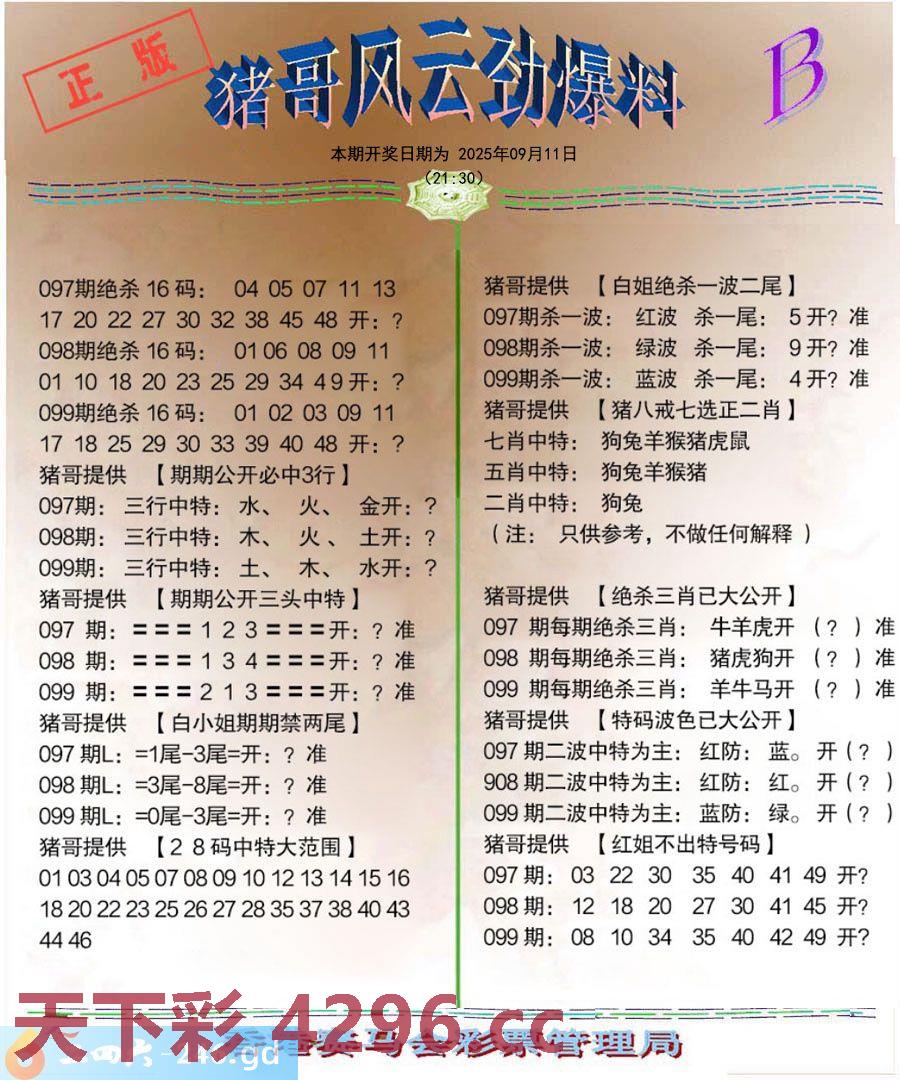 正版
猪哥风云劲爆料
B
本期开奖日期为 2025年09月11日
（21:30）
097期绝杀16码： 04 05 07 11 13
17 20 22 27 30 32 38 45 48 开：?
098期绝杀16码： 01 06 08 09 11
01 10 18 20 23 25 29 34 4 9 开：?
099期绝杀16码： 01 02 03 09 11
17 18 25 29 30 33 39 40 48 开：?
猪哥提供 【期期公开必中3行】
097期：三行中特：水、 火、 金开：?
098期：三行中特：木、 火、 土开：?
099期：三行中特：土、 木、 水开：?
猪哥提供 【期期公开三头中特】
097 期：===1 2 3===开：? 准
098 期：===1 3 4===开：? 准
099 期：===2 1 3===开：? 准
猪哥提供 【白小姐期期禁两尾】
097期L：=1尾-3尾=开：? 准
098期L：=3尾-8尾=开：? 准
099期L：=0尾-3尾=开：? 准
猪哥提供 【２８码中特大范围】
01 03 04 05 07 08 09 10 12 13 14 15 16
18 20 22 23 25 26 27 28 35 37 38 40 43
44 46
猪哥提供 【白姐绝杀一波二尾】
097期杀一波： 红波 杀一尾： 5开? 准
098期杀一波： 绿波 杀一尾： 9开? 准
099期杀一波： 蓝波 杀一尾： 4开? 准
猪哥提供 【猪八戒七选正二肖】
七肖中特： 狗兔羊猴猪虎鼠
五肖中特： 狗兔羊猴猪
二肖中特： 狗兔
（注： 只供参考，不做任何解释 ）
猪哥提供 【绝杀三肖已大公开】
097 期每期绝杀三肖： 牛羊虎开 （? ）准
098 期每期绝杀三肖： 猪虎狗开 （? ）准
099 期每期绝杀三肖： 羊牛马开 （? ）准
猪哥提供 【特码波色已大公开】
097期二波中特为主：红防：蓝。开（? ）
908期二波中特为主：红防：红。开（? ）
099期二波中特为主：蓝防：绿。开（? ）
猪哥提供 【红姐不出特号码】
097期： 03 22 30 35 40 41 49 开?
098期： 12 18 20 27 30 41 45 开?
099期： 08 10 34 35 40 42 49 开?
天下彩 4296.cc
马会彩票管理局